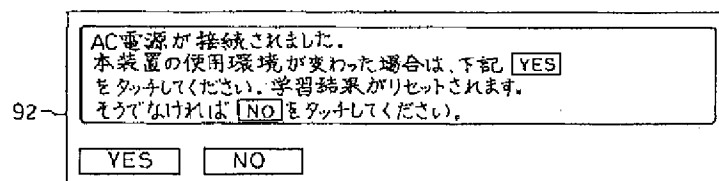 AC電源が接続されました。
本装置の使用環境が変わった場合は、下記 YES
をタッチしてください。学習結果がリセットされます。
そうでなければ NO をタッチしてください。
92
YES NO